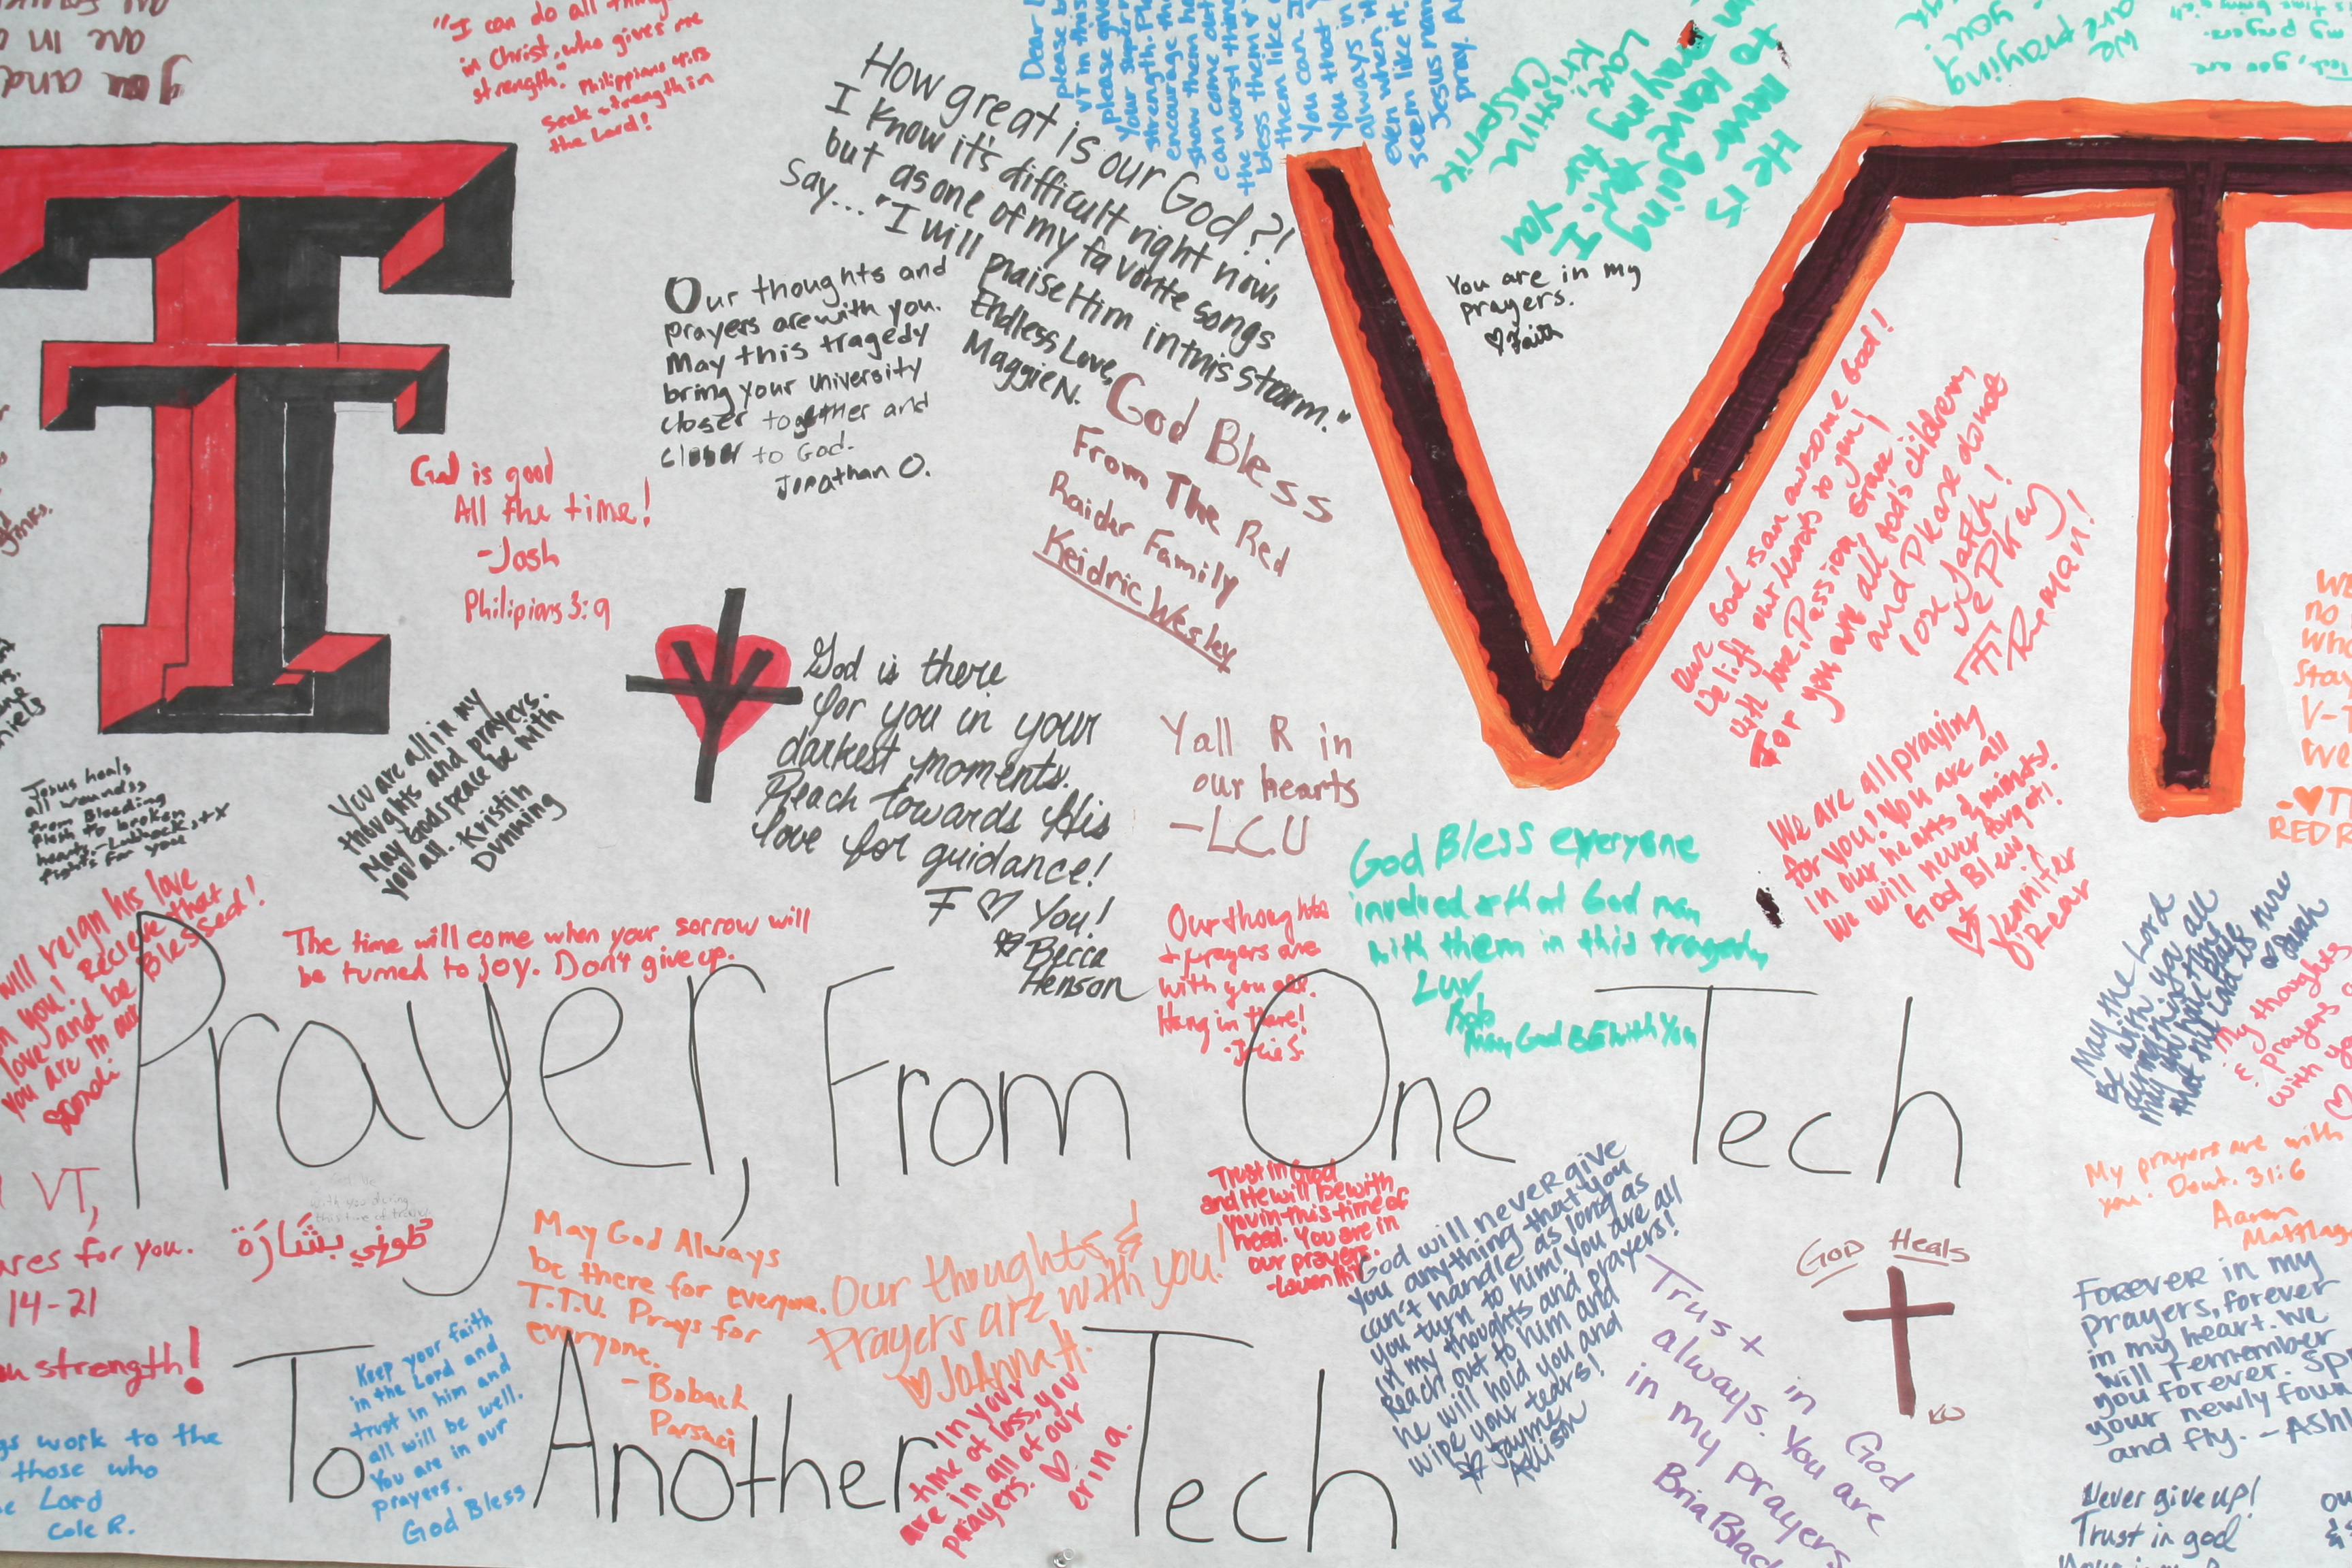 you and
are in a
"I can do all things
in Christ, who gives me
strength." Philippians 4:13
Seek strength in
the Lord!
Dear
please
VT in this
please give
Your
strength.
encourage
show them
can come out
the worst
bless them
them like
You can
You that
always in
even when
seem like it.
Jesus name
pray.
How great is our God?!
I know it's difficult right now,
but as one of my favorite songs
Say... "I will praise Him in this storm."
Endless Love,
Maggie N.
He is
to never
leave
going
my
for. I
pray for you
Love,
Kristina
Gasperite
We
are praying
you!
You are in my
prayers.
♡Faith
Our thoughts and
prayers are with you.
May this tragedy
bring your university
closer together and
closer to God.
Jonathan O.
God Bless
From The Red
Raider Family
Keidric Wesley
VT
God is good
All the time!
-Josh
Philipians 3:9
God is there
for you in your
darkest moments.
Reach towards His
love for guidance!
I ♡ You!
Becca
Henson
Yall R in
our hearts
-LCU
Our God is an awesome God!
We lift our hearts to you!
with love, Passion, Grace!
For you are all God's children,
and PK are
lose faith!
we PK
The man!
We are all praying
for you! You are all
in our hearts & minds!
We will never forget!
God Bless!
Jennifer
Rear
V-T
we
RED R
You are all in my
thoughts and prayers.
May Gods peace be with
you all. Kristin
Dunning
Jesus heals
all wounds
from Bleeding
flesh to broken
hearts.-Lubbock, tx
fights for you
will reign his love
on you! Recieve that
love and be Blessed!
you are in our
The time will come when your sorrow will
be turned to joy. Don't give up.
Our thoughts
+ prayers are
with you all.
Hang in there!
God Bless everyone
involved & that God may
with them in this tragedy
Luv
Rob
May God BE with You
May the Lord
Be with you all
that the Lord is
Sarah
My thoughts
& prayers
with
Prayer, From One Tech
To Another Tech
VT,
ares for you.
14-21
strength!
with you during
this time of
كوني بشارة
May God Always
be there for everyone.
T.T.U. Prays for
everyone.
- Boback
Parsaei
Our thoughts &
Prayers are with you!
♡JoAnna H.
Trust in God
and He will be with
you in this time of
need. You are in
our prayers.
God will never give
you anything that you
can't handle as long as
you turn to him! You are all
in my thoughts and prayers!
Reach out to him and
he will hold you and
wipe your tears!
Jayme
Allison
Trust in God
always. You are
in my prayers
Bria Black
GOD Heals
KW
My prayers are with
you. Deut. 31:6
Aaron
FOREVER in my
prayers, forever
in my heart. We
will remember
you forever.
your newly found
and fly. - Ash
Never give up!
Trust in god
Keep your faith
in the Lord and
trust in him and
all will be well.
You are in our
prayers.
God Bless
In your
time of loss, you
are in all of our
prayers. ♡
erina.
work to the
those who
Lord
Cole R.